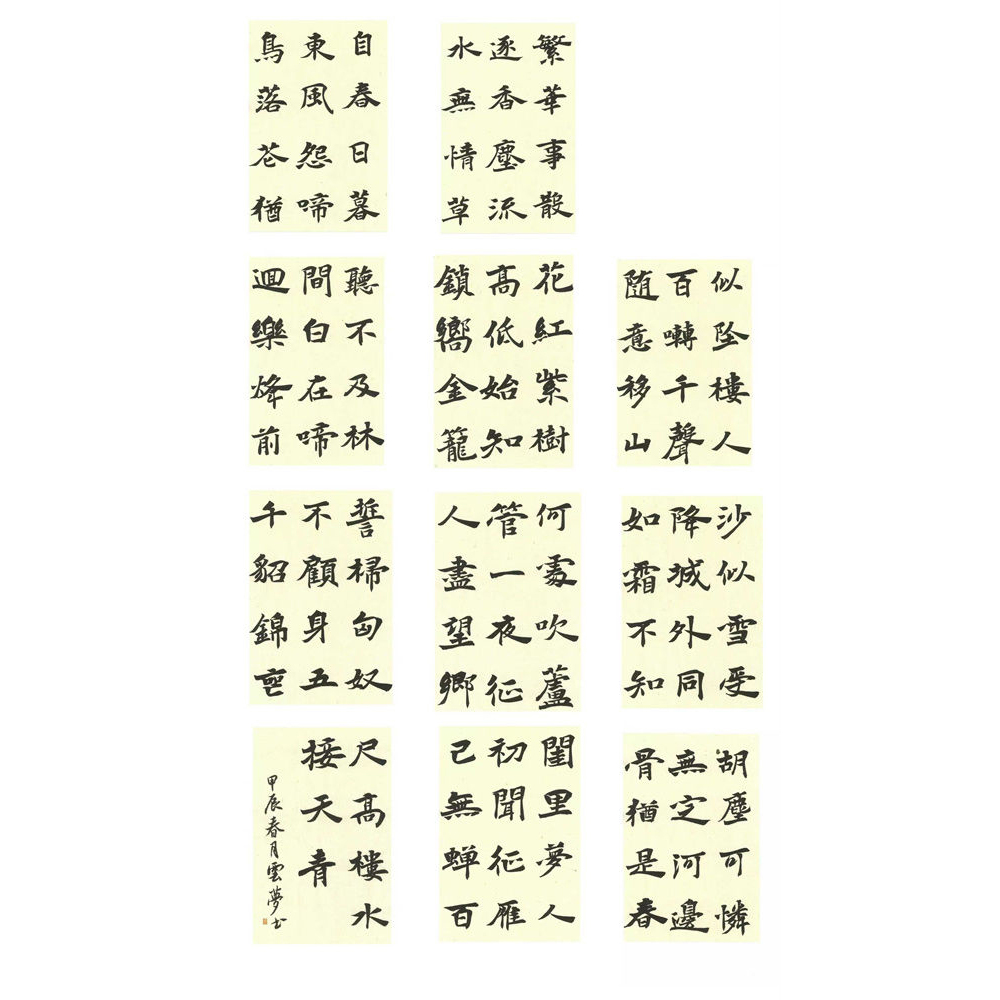 繁華事散
逐香塵流
水無情草
自春日暮
東風怨啼
鳥落花猶
似坠樓人
百囀千聲
随意移山
花紅紫樹
高低始知
鎖嚮金籠
聽不及林
間白在啼
迴樂烽前
沙似雪受
降城外同
如霜不知
何處吹蘆
管一夜征
人盡望鄉
誓掃匈奴
不顧身五
千貂錦喪
胡塵可憐
無定河邊
骨猶是春
閨里夢人
初聞征雁
已無蝉百
尺高樓水
接天青
甲辰春月雲夢书